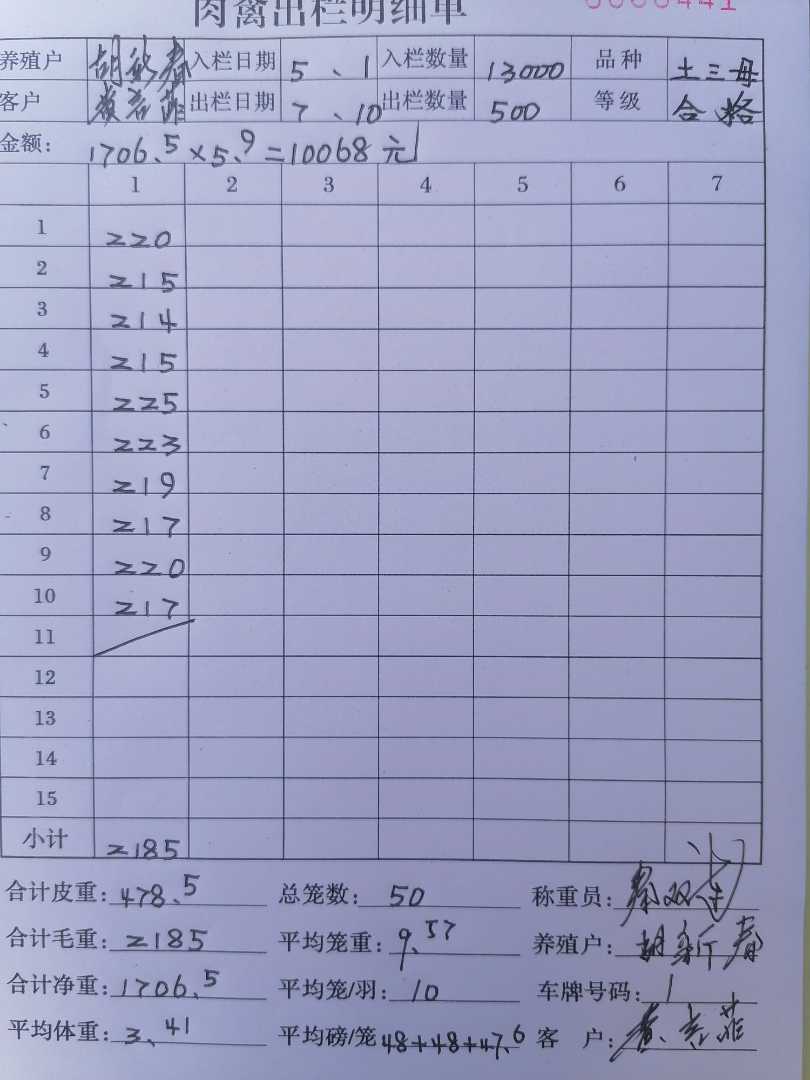 肉禽出栏明细单
0000441
养殖户 胡新春 入栏日期 5、1 入栏数量 13000 品种 土三母
客户 入栏日期 7、10 出栏数量 500 等级 合格
金额: 1706.5×5.9=10068元
1 2 3 4 5 6 7
1 220
2 215
3 214
4 215
5 225
6 223
7 219
8 217
9 220
10 217
11
12
13
14
15
小计 2185
合计皮重: 478.5 总笼数: 50 称重员:
合计毛重: 2185 平均笼重: 9.57 养殖户: 胡新春
合计净重: 1706.5 平均笼/羽: 10 车牌号码: 1
平均体重: 3、41 平均磅/笼 48+48+47.6 客 户: